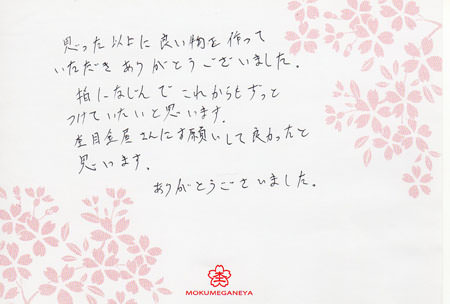 思った以上に良い物を作って
いただきありがとうございました。
指になじんでこれからもずっと
つけていたいと思います。
杢目金屋さんにお願いして良かったと
思います。
ありがとうございました。
杢
MOKUMEGANEYA